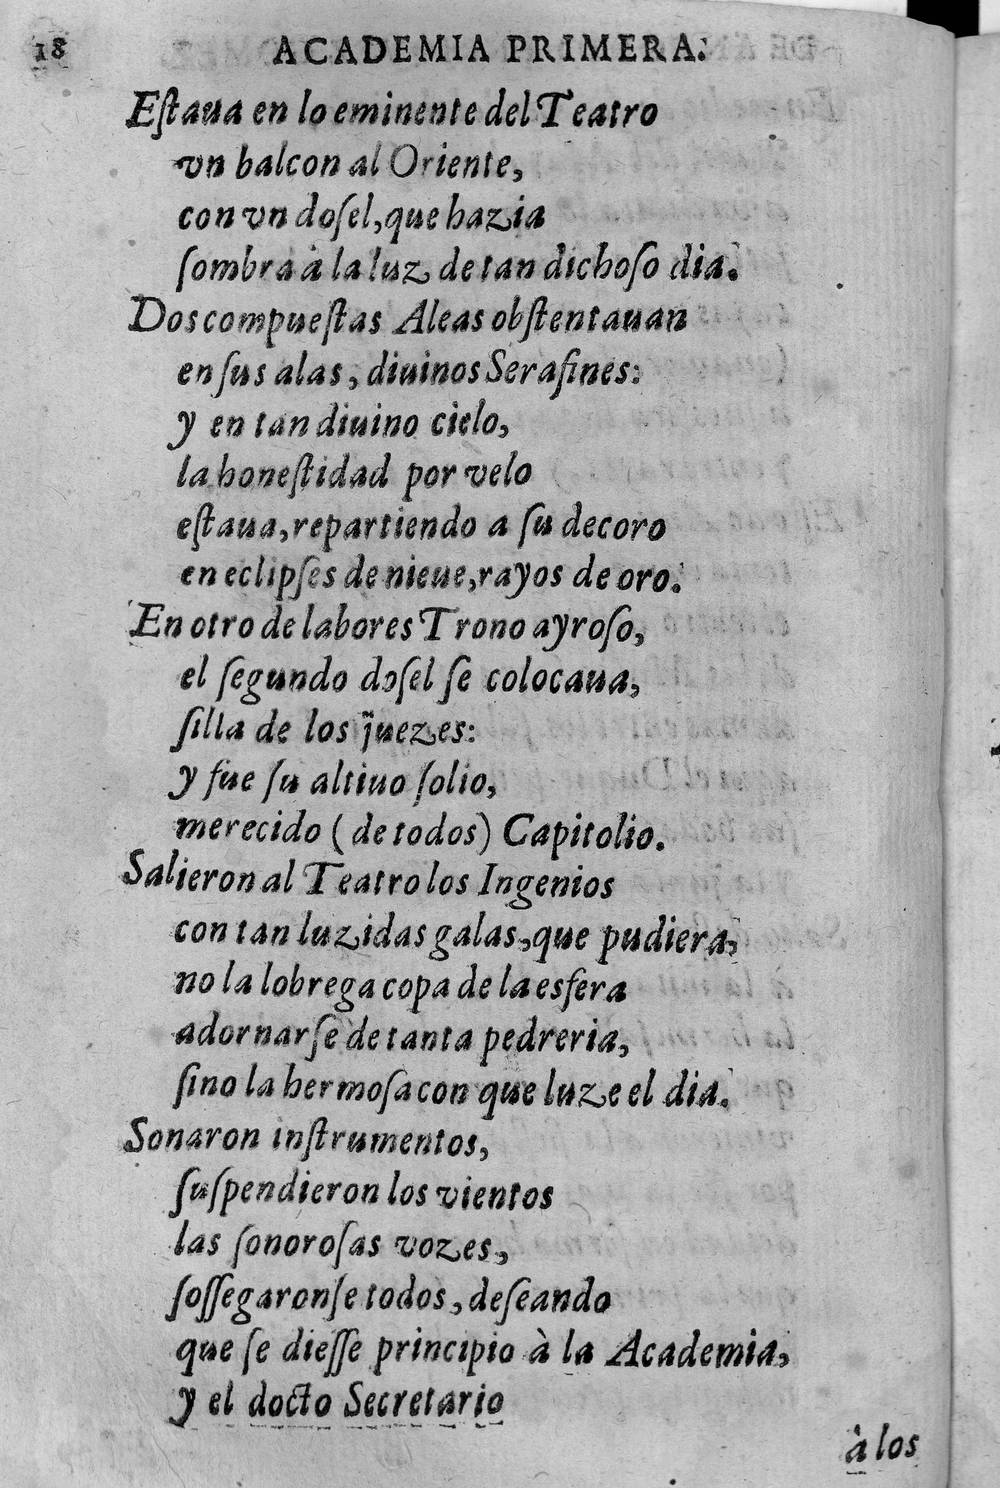 18 ACADEMIA PRIMERA.
Eſtaua en lo eminente del Teatro
vn balcon al Oriente,
con vn doſel, que hazia
ſombra à la luz de tan dichoſo dia.
Dos compueſtas Aleas obſtentauan
en ſus alas, diuinos Serafines:
y en tan diuino cielo,
la honeſtidad por velo
eſtaua, repartiendo a ſu decoro
en eclipſes de nieue, rayos de oro.
En otro de labores Trono ayroſo,
el ſegundo doſel ſe colocaua,
ſilla de los juezes:
y fue ſu altiuo ſolio,
merecido (de todos) Capitolio.
Salieron al Teatro los Ingenios
con tan luzidas galas, que pudiera,
no la lobrega copa de la esfera
adornarſe de tanta pedreria,
ſino la hermoſa con que luze el dia.
Sonaron inſtrumentos,
ſuſpendieron los vientos
las ſonoroſas vozes,
ſoſſegaronſe todos, deſeando
que ſe dieſſe principio à la Academia,
y el docto Secretario
à los